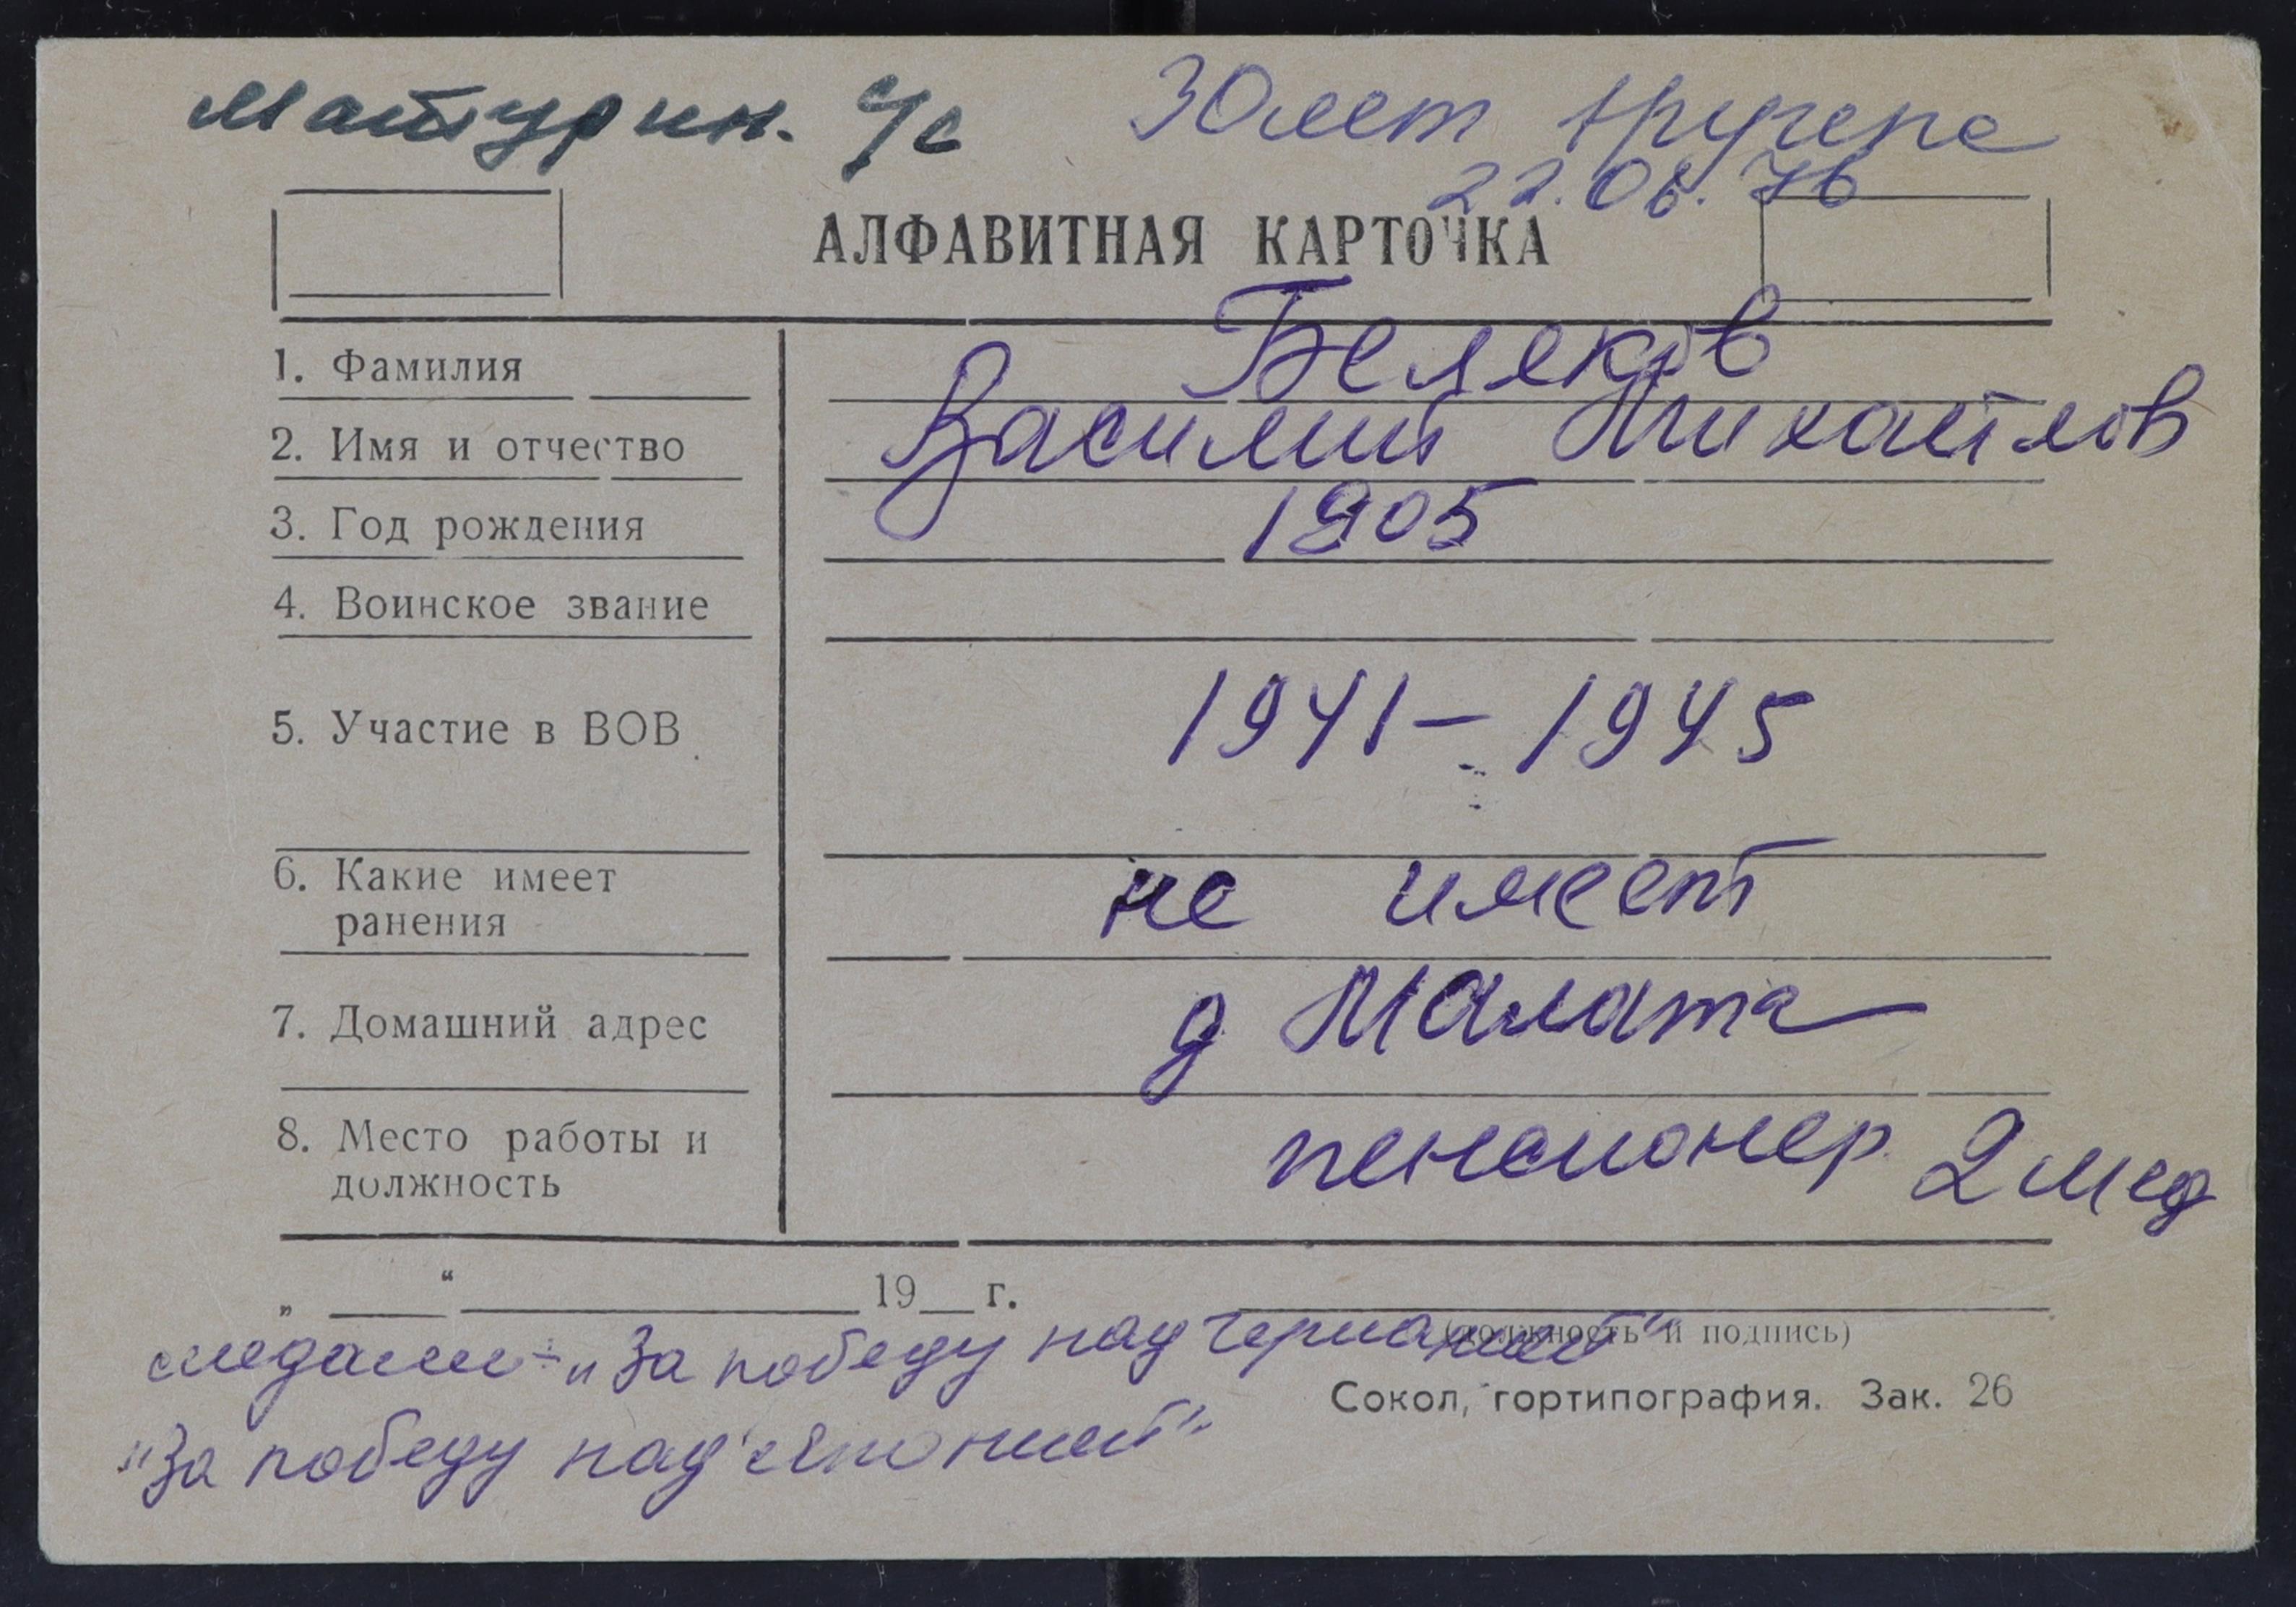 Матурин. с/с 30 лет вручена
22.06.76
АЛФАВИТНАЯ КАРТОЧКА
1. Фамилия Беляков
2. Имя и отчество Василий Михайлов
3. Год рождения 1905
4. Воинское звание
5. Участие в ВОВ 1941 – 1945
6. Какие имеет ранения не имеет
7. Домашний адрес д Малата
8. Место работы и должность пенсионер 2 мед
„ “ 19 г.
(должность и подпись)
медали - „За победу над Германией"
Сокол, гортипография. Зак. 26
"За победу над Японией"